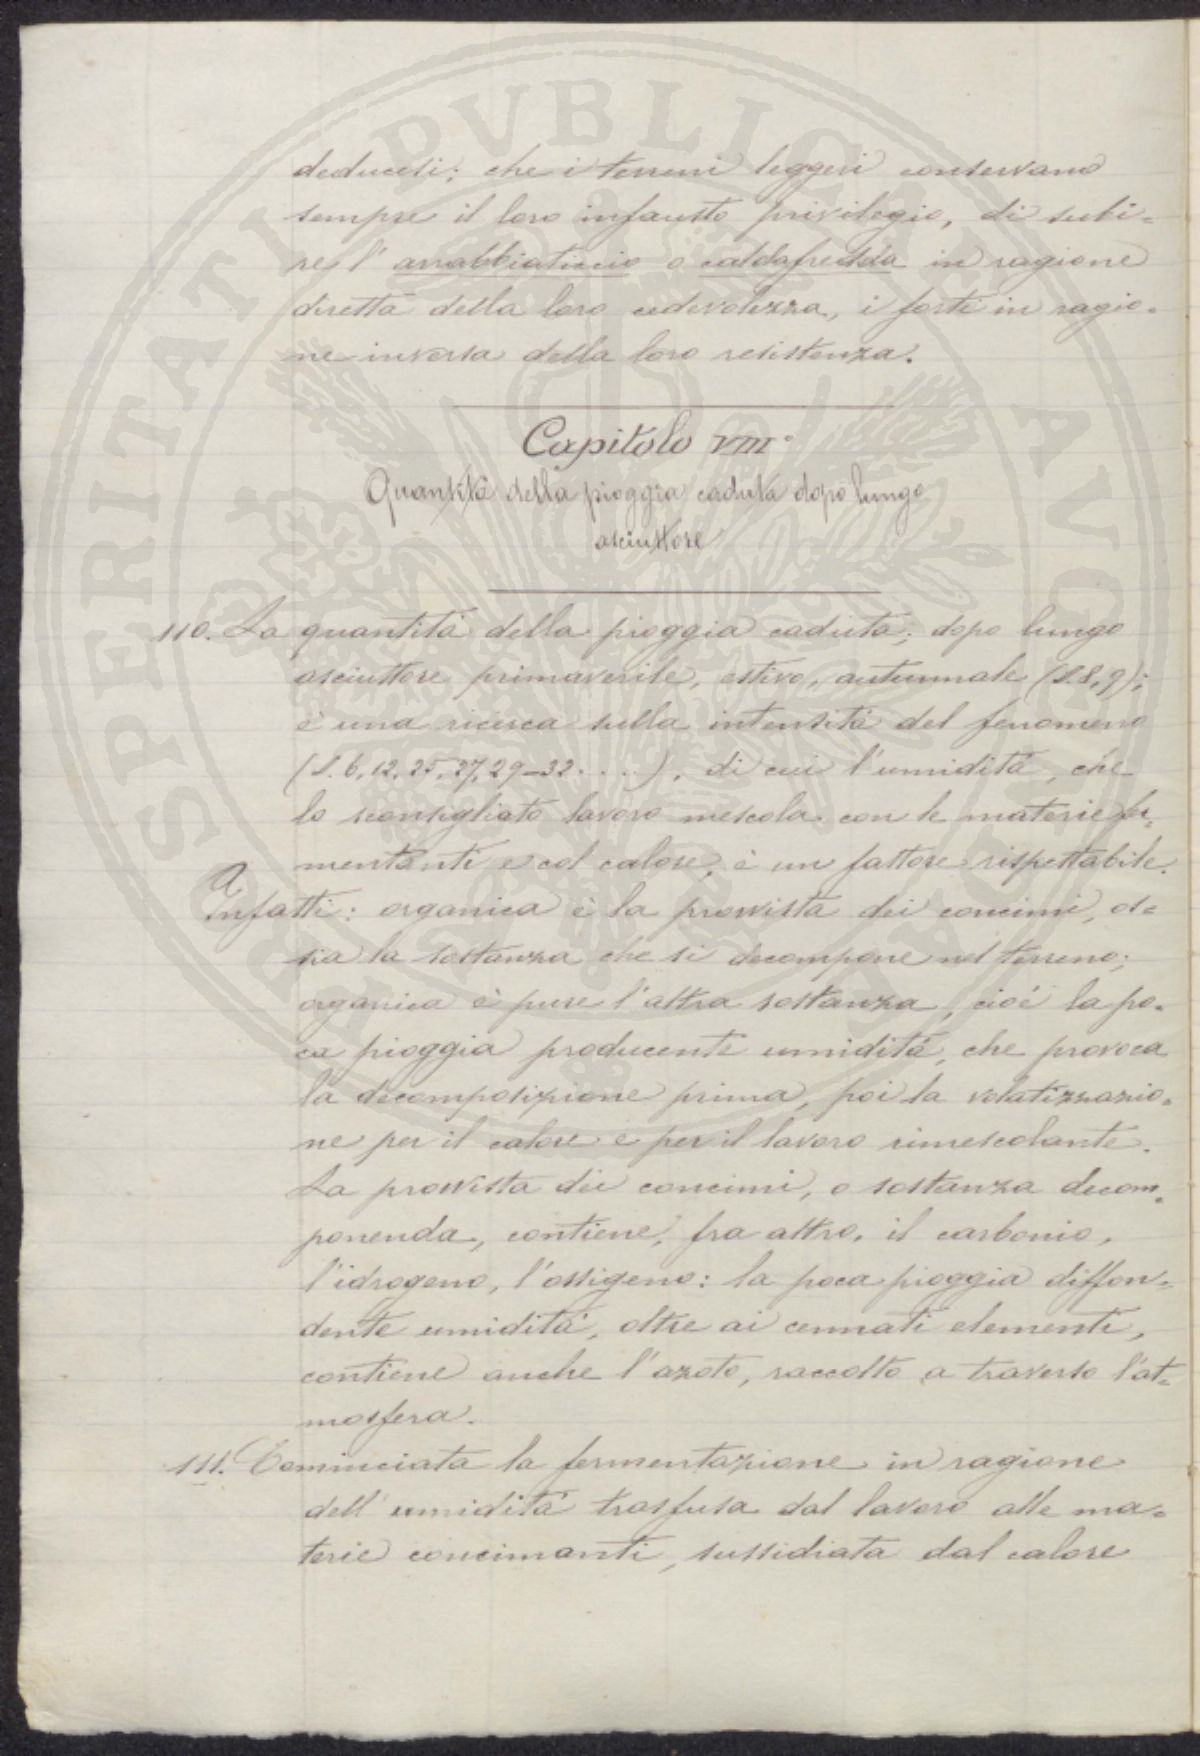 deducesi: che i terreni leggeri conservano
sempre il loro infausto privilegio, di subi=
re l'arrabbiaticcio o caldafredda in ragione
diretta della loro cedevolezza, i forti in ragio=
ne inversa della loro resistenza.
Capitolo VIII°
Quantità della pioggia caduta dopo lungo
asciuttore
110. La quantità della pioggia caduta; dopo lungo
asciuttore primaverile, estivo, autunnale (§. 8, 9);
è una ricerca sulla intensità del fenomeno
(§. 6, 12, 25, 27, 29–32 . . . .), di cui l'umidità, che
lo sconsigliato lavoro mescola con le materie fer=
mentanti e col calore, è un fattore rispettabile.
Infatti: organica è la provvista dei concimi, os=
sia la sostanza che si decompone nel terreno;
organica è pure l'altra sostanza, cioè la po=
ca pioggia producente umidità, che provoca
la decomposizione prima, poi la volatizzazio=
ne per il calore e per il lavoro rimescolante.
La provvista dei concimi, o sostanza decom=
ponenda, contiene, fra altro, il carbonio,
l'idrogeno, l'ossigeno: la poca pioggia diffon=
dente umidità, oltre ai cennati elementi,
contiene anche l'azoto, raccolto a traverso l'at=
mosfera.
111. Cominciata la fermentazione in ragione
dell'umidità trasfusa dal lavoro alle ma=
terie concimanti, sussidiata dal calore
PVBLICAE
SPERITATI